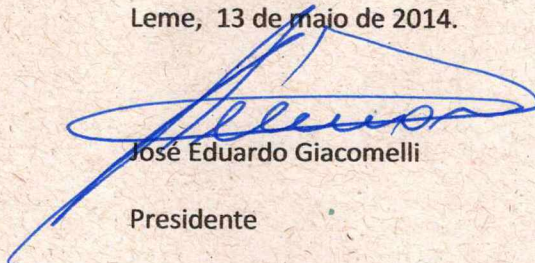 Leme, 13 de maio de 2014.
José Eduardo Giacomelli
Presidente